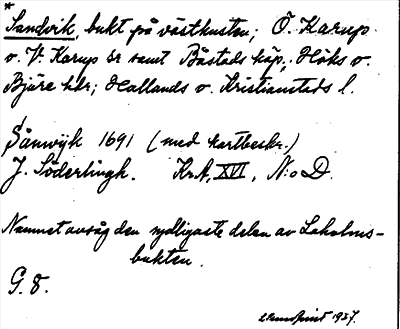 *
Sandvik, bukt på västkusten; Ö. Karups
o. V. Karups sr samt Båstads köp; Höks o.
Bjäre hdr; Hallands o. Kristianstads l.
Sånwÿk 1691 (med kartbeskr.)
J. Söderlingh. Kr.A, XVI, N:o D.
Namnet avsåg den sydligaste delen av Laholms-
bukten.
G. 8.
1927.